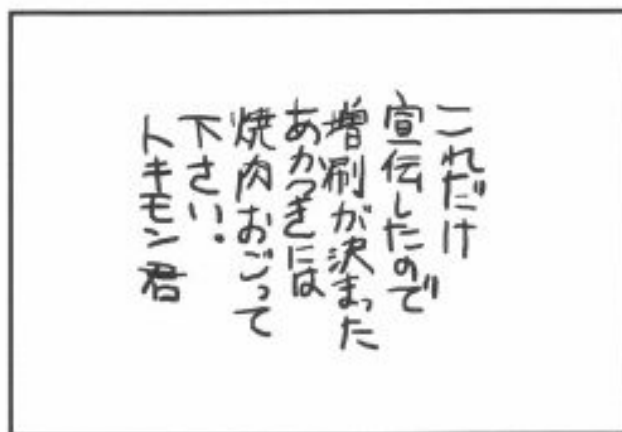 これだけ
宣伝したので
増刷が決まった
あかつきには
焼肉おごって
下さい.
トキモン君